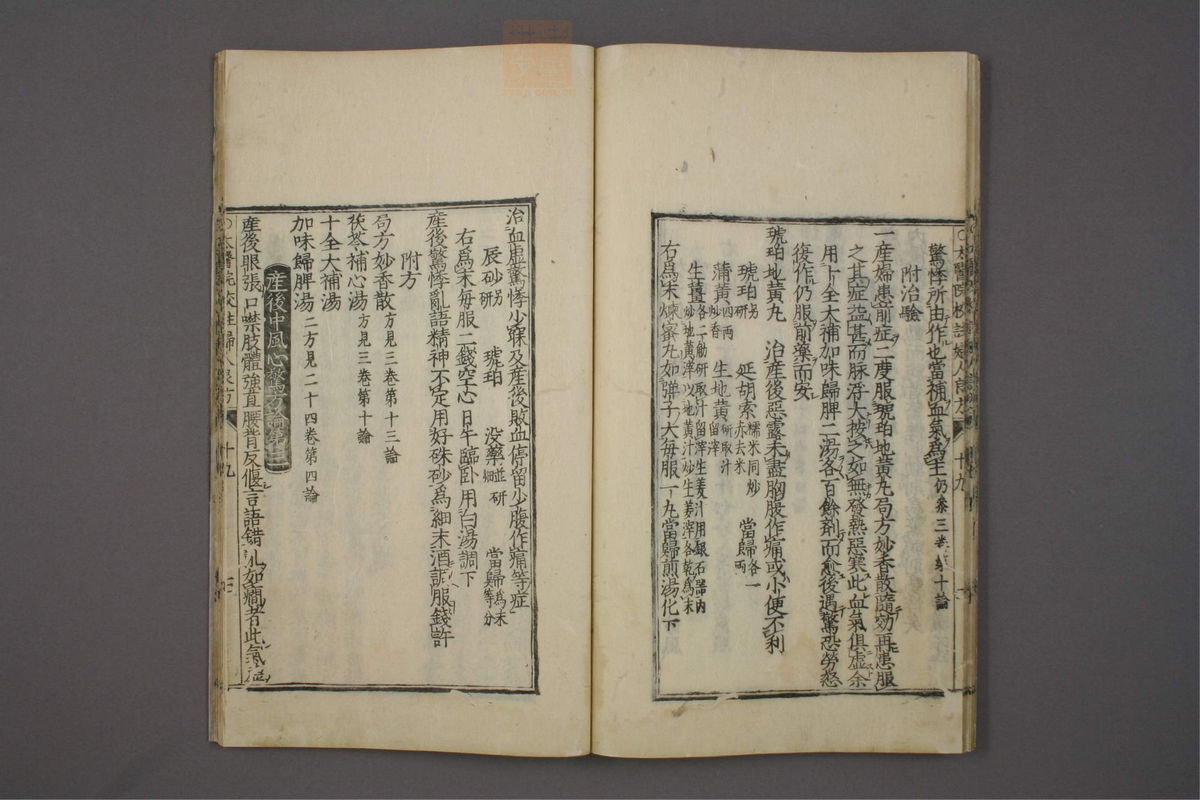 驚悸所由作也當補血氣為主仍參三卷第十論
附治驗
一産婦患前症二度服琥珀地黃丸局方妙香散隨効再患服
之其症益甚而脉浮大按之如無發熱惡寒此血氣俱虚余
用十全大補加味歸脾二湯各百餘劑而愈後遇驚恐勞怒
復作仍服前藥而安
琥珀地黃丸 治產後惡露未盡胸腹作痛或小便不利
琥珀另研 延胡索糯米同炒赤去米 當歸各一両
蒲黃四両炒香 生地黃研取汁留滓
生薑各二觔研取汁留滓生姜汁用銀石器內炒地黃滓以地黃汁炒生姜滓各乾為末
右爲末煉蜜丸如弹子大每服一丸當歸煎湯化下
治血虚驚悸少寐及産後敗血停留少腹作痛等症
辰砂另研 琥珀 没藥並研細 當歸為末等分
右爲末每服二錢空心日午臨臥用白湯調下
産後驚悸亂語精神不定用好硃砂爲細末酒調服錢許
附方
局方妙香散方見三卷第十三論
茯苓補心湯方見三卷第十論
十全大補湯
加味歸脾湯二方見二十四卷第四論
産後中風心驚方論第三
産後眼張口噤肢體強直腰背反偃言語錯乱如癇者此氣
〇太醫院校註婦人良方 十九